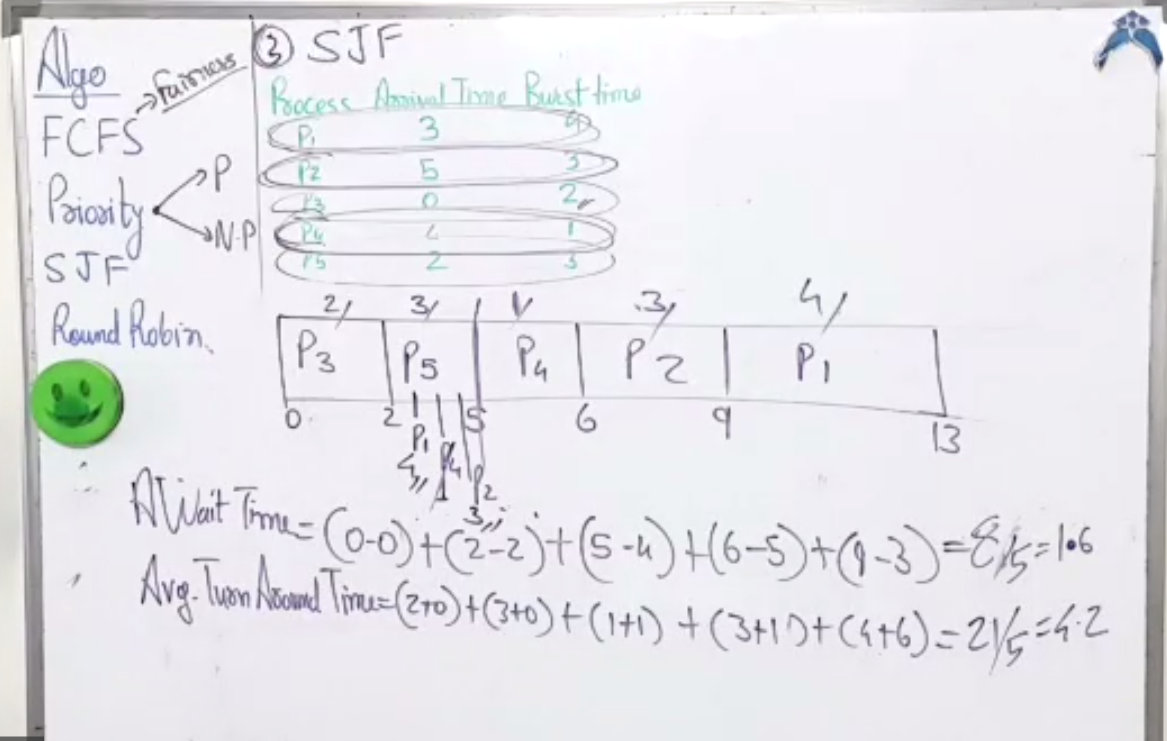 Algo
→Fairness
FCFS
Priority
→P
→N.P
SJF
Round Robin.
③ SJF
Process Arrival Time Burst time
P1 3 4
P2 5 3
P3 0 2
P4 4 1
P5 2 3
2 3 1 3 4
P3 P5 P4 P2 P1
0 2 5 6 9 13
P1 P4 P2
4 1 3
A Wait Time = (0-0)+(2-2)+(5-4)+(6-5)+(9-3)=8/5=1.6
Avg. Turn Around Time=(2+0)+(3+0)+(1+1)+(3+1)+(4+6)=21/5=4.2